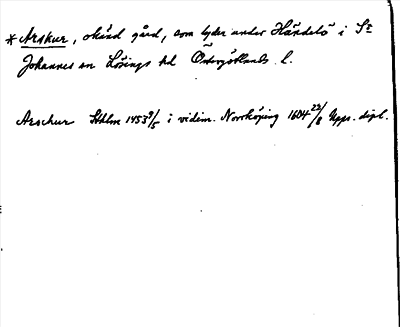 *Arskur, okänd gård, som lyder under Händelö i S:t
Johannes sn Lösings hd Östergötlands l.
Arschur Sthlm 1453 9/5 i vidim. Norrköping 1604 22/8 Upps. dipl.